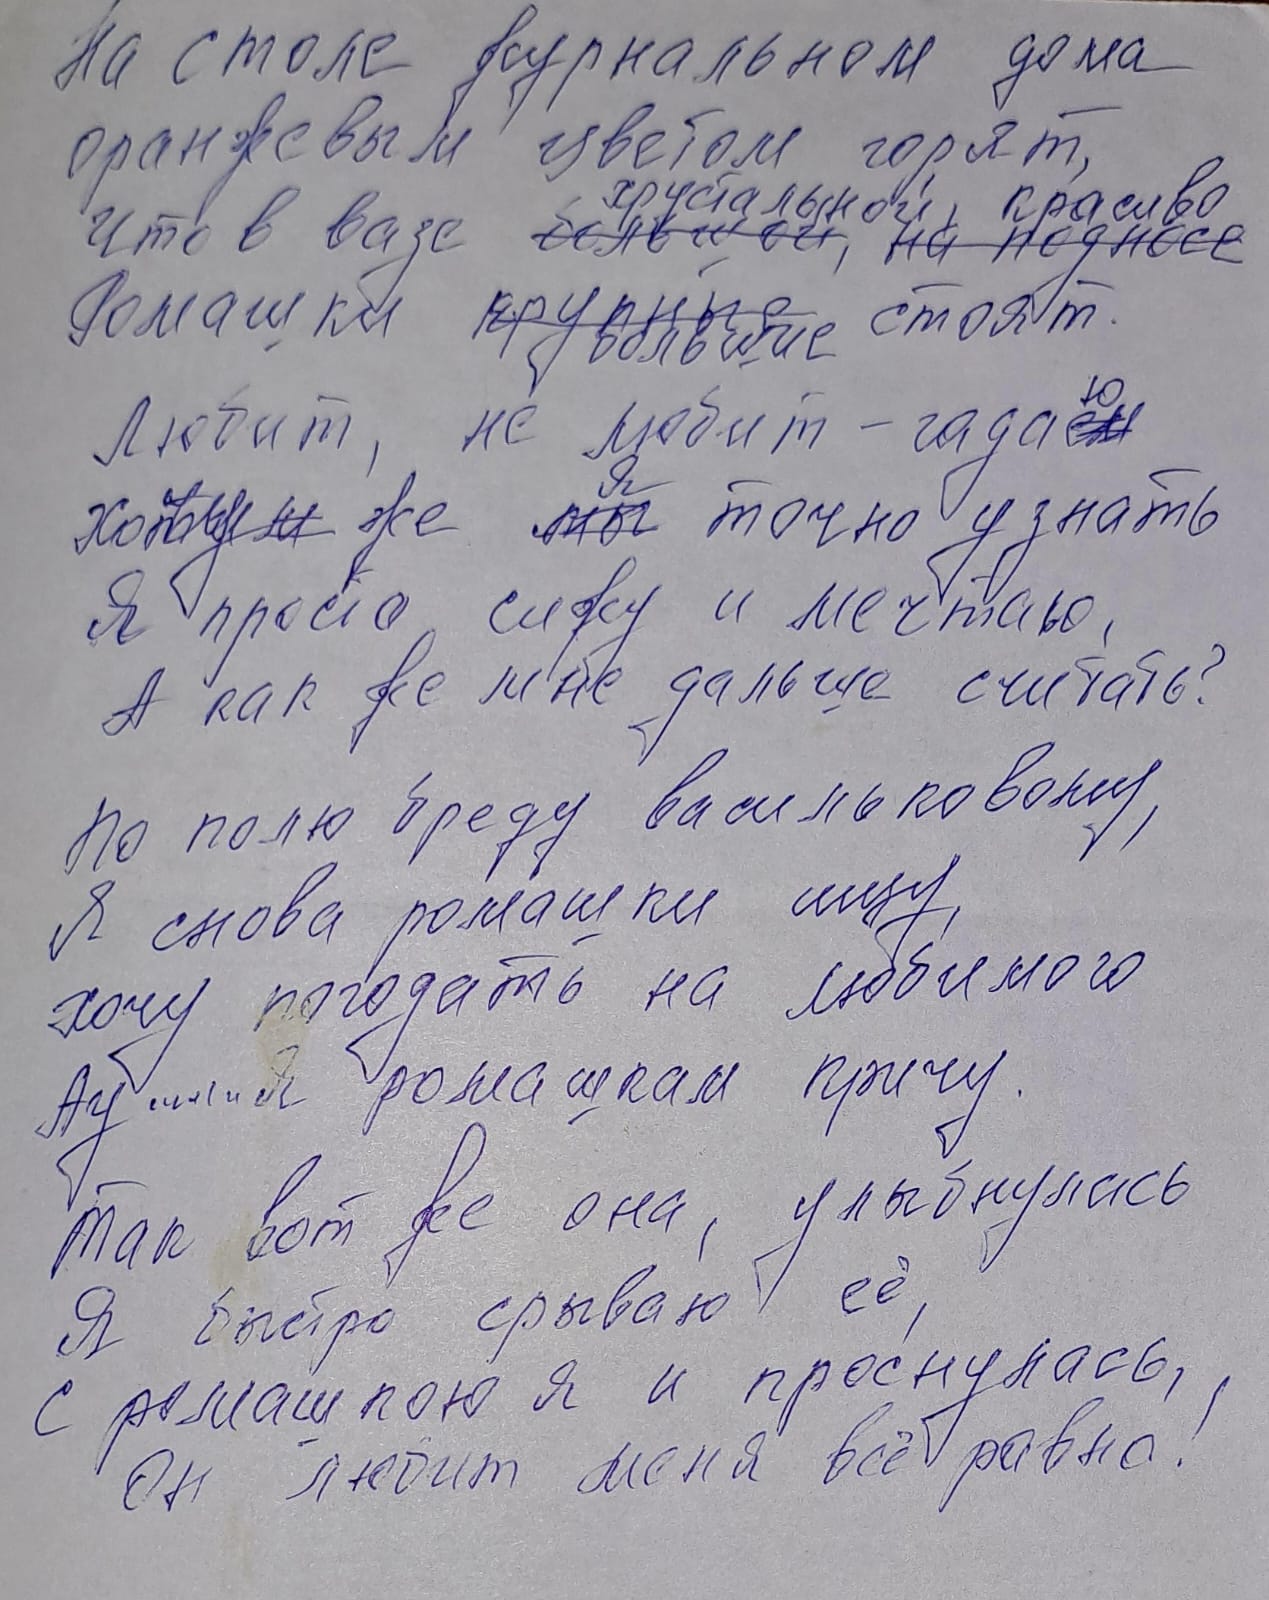 На столе журнальном дома
оранжевым цветом горят,
хрустальной, красиво
Что в вазе большой, на подносе
Ромашки крупные стоят.
большие
Любит, не любит – гадаем
ю
я
же мы точно узнать
Я просто сижу и мечтаю,
А как же мне дальше считать?
По полю бреду васильковому,
Я снова ромашки ищу,
хочу погодать на любимого
Ау я ромашкам кричу.
Так вот же она, улыбнулась
Я быстро срываю её,
С ромашкою я и проснулась,
Он любит меня всё равно!